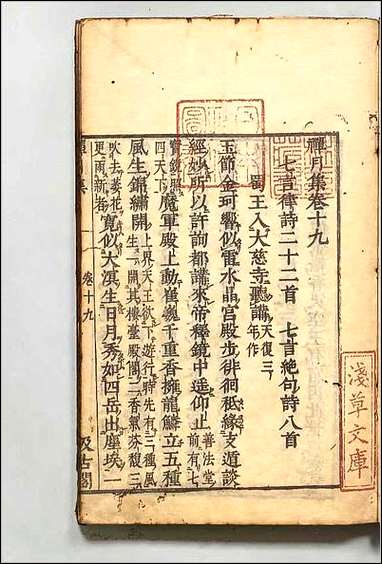 禪月集卷十九
七言律詩二十二首　七言絶句詩八首
蜀王入大慈寺聽講天復三年作
玉節金珂響似雷水晶宮殿步徘徊秪緣支遁談
經妙所以許詢都講來帝釋鏡中遥仰止善法堂有
寶鏡照四天下魔軍殿上動崔嵬千重香擁龍鱗立五種
風生錦繡開上界天王欲下遊行時先有三種風生一開其樓臺殿閣二香氣芬馥三
吹去萎花更雨新者寛似大溟生日月秀如四岳出塵埃一
卷十九
汲古閣
淺草文庫